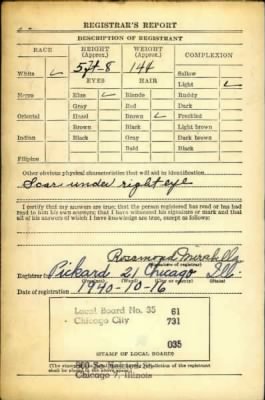 REGISTRAR'S REPORT
DESCRIPTION OF REGISTRANT
RACE HEIGHT (Approx.) WEIGHT (Approx.) COMPLEXION
White 5ft-8 144 Sallow
EYES HAIR Light
Negro Blue Blonde Ruddy
Gray Red Dark
Oriental Hazel Brown Freckled
Brown Black Light brown
Indian Black Gray Dark brown
Bald Black
Filipino
Other obvious physical characteristics that will aid in identification
Scar under right eye
I certify that my answers are true; that the person registered has read or has had
read to him his own answers; that I have witnessed his signature or mark and that
all of his answers of which I have knowledge are true, except as follows:
Rosamond Mirabella
(Signature of registrar)
Registrar for Pickard 21 Chicago Ill.
(Precinct) (Ward) (City or county) (State)
Date of registration 1940-10-16
Local Board No. 35 61
Chicago City 731
035
(STAMP OF LOCAL BOARD)
(The stamp of the Local Board having jurisdiction of the registrant
shall be placed in the above space.)
Chicago 7, Illinois